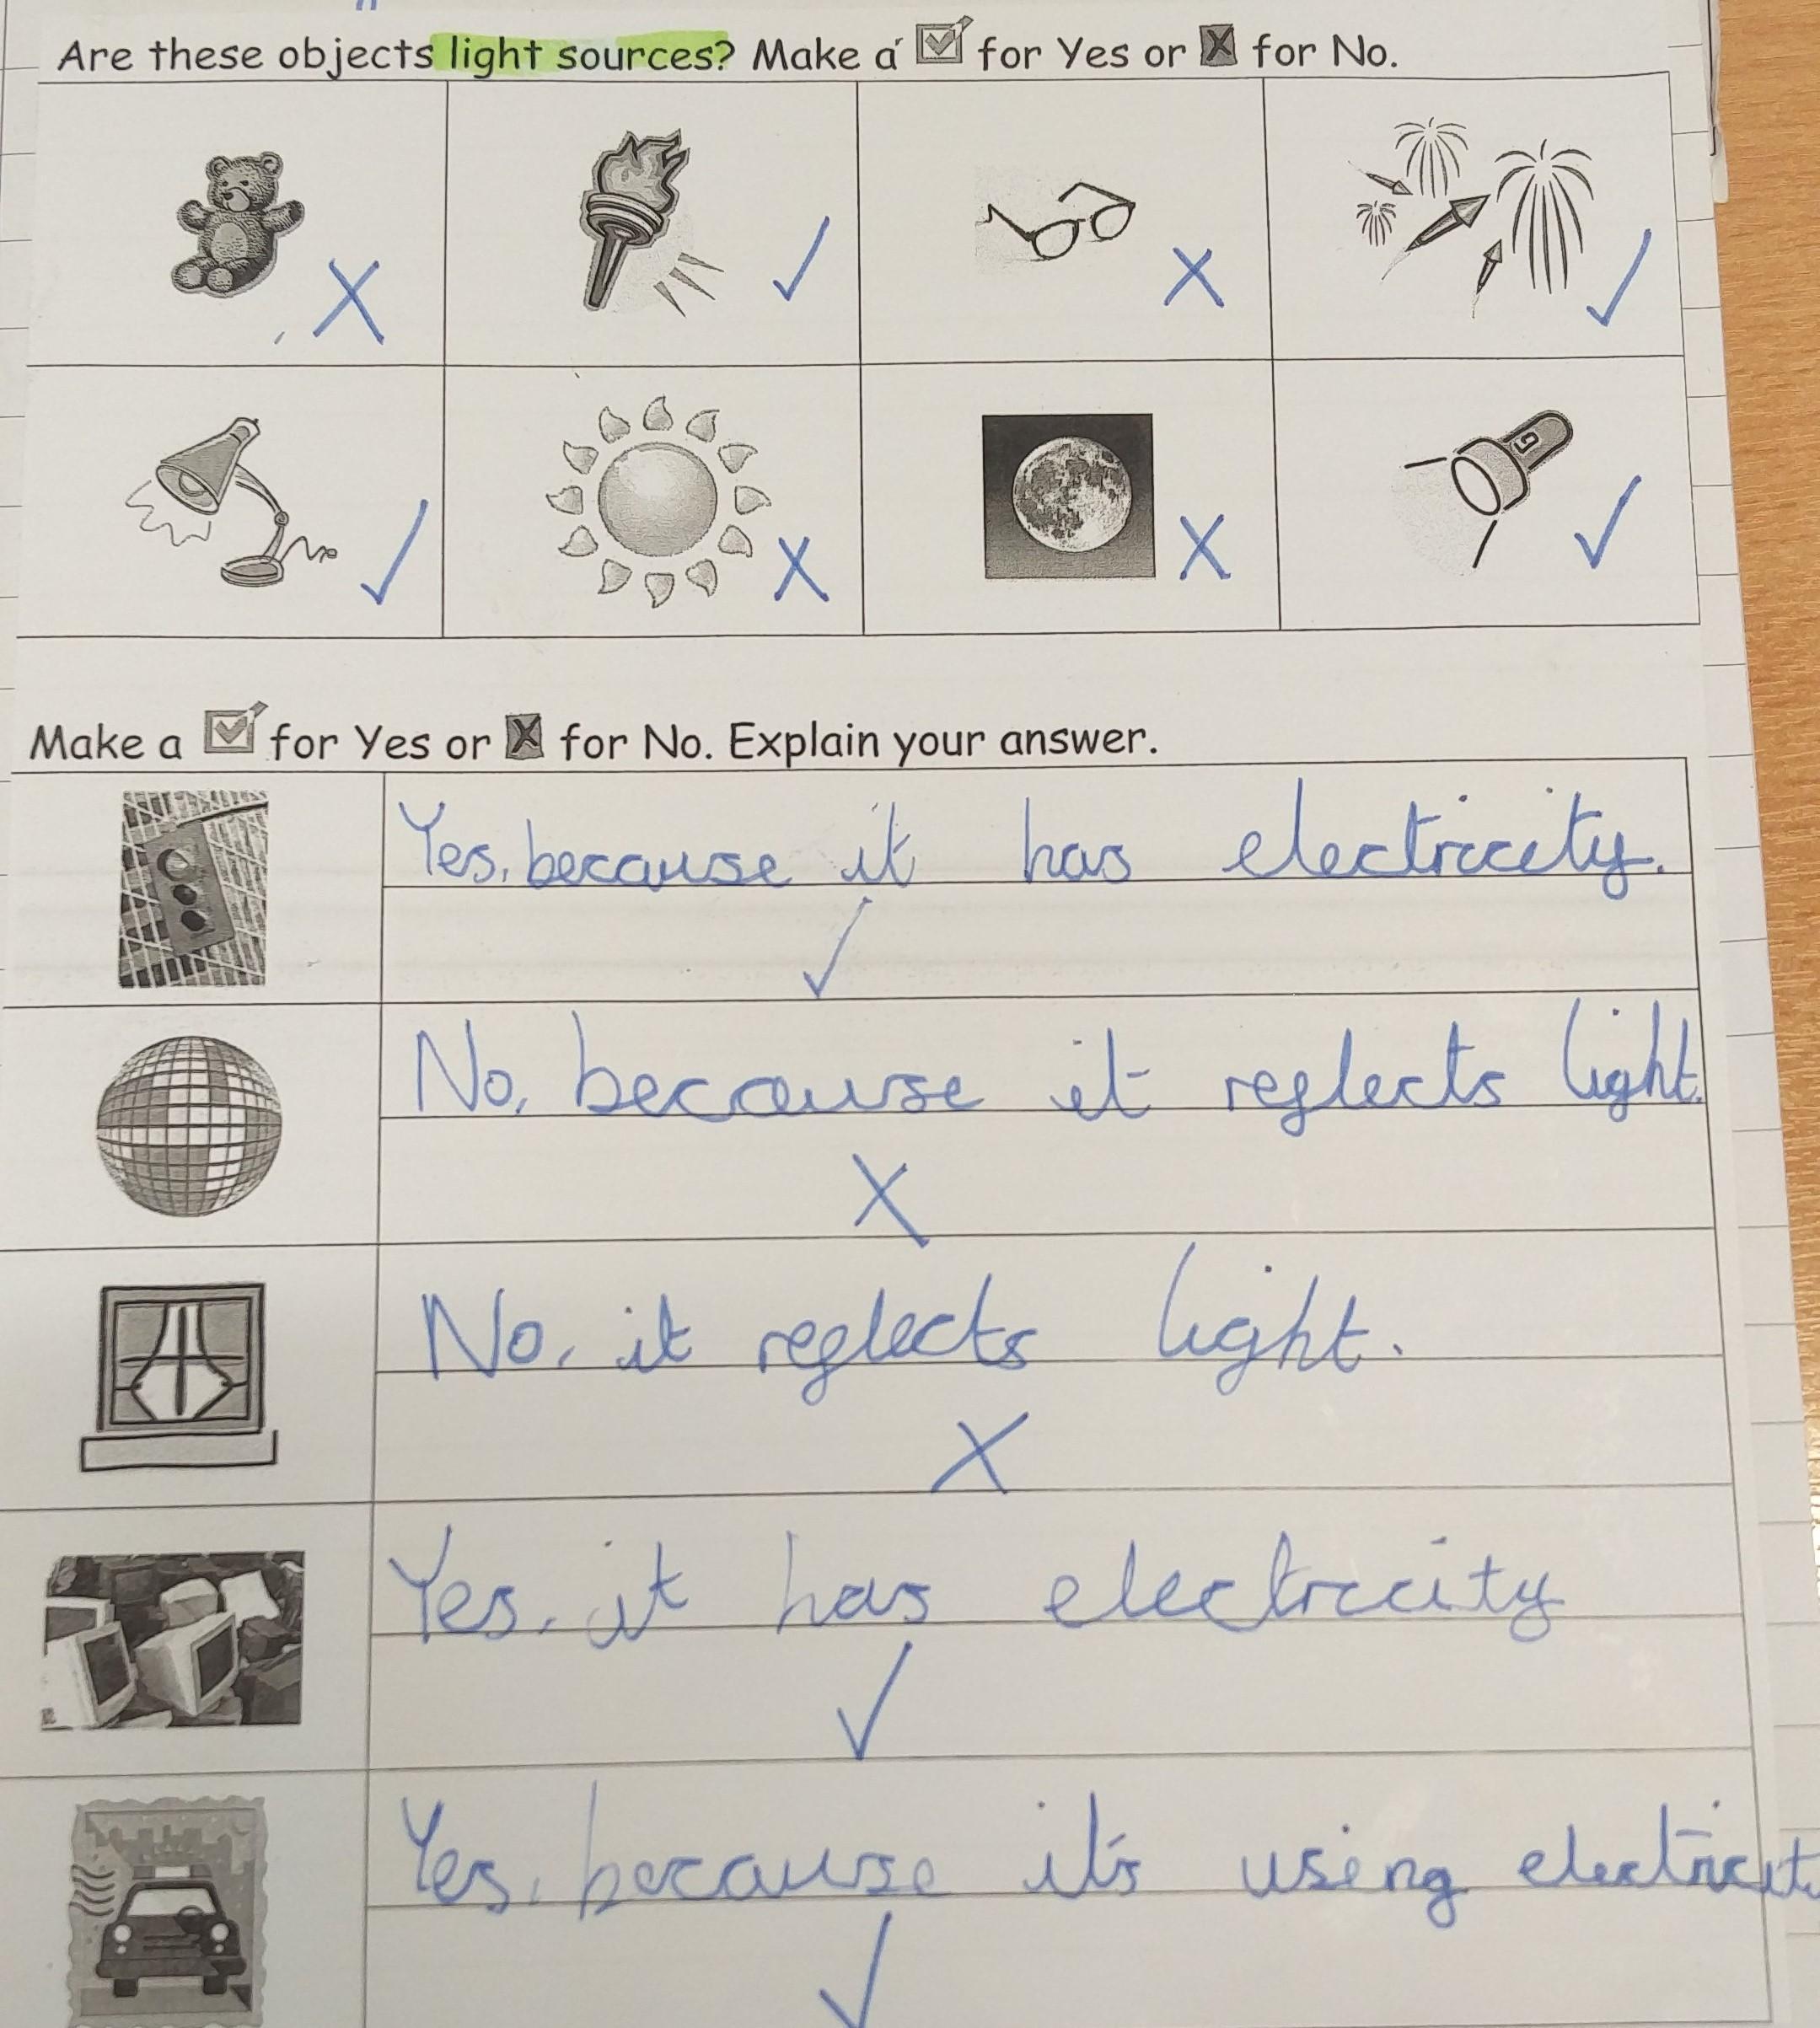 Are these objects light sources? Make a ☑ for Yes or ☒ for No.
X ✓ X ✓
✓ X X ✓
Make a ☑ for Yes or ☒ for No. Explain your answer.
Yes, because it has electricity.
✓
No, because it reglects light.
X
No, it reglects light.
X
Yes, it has electricity
✓
Yes, because it's using electricit
✓